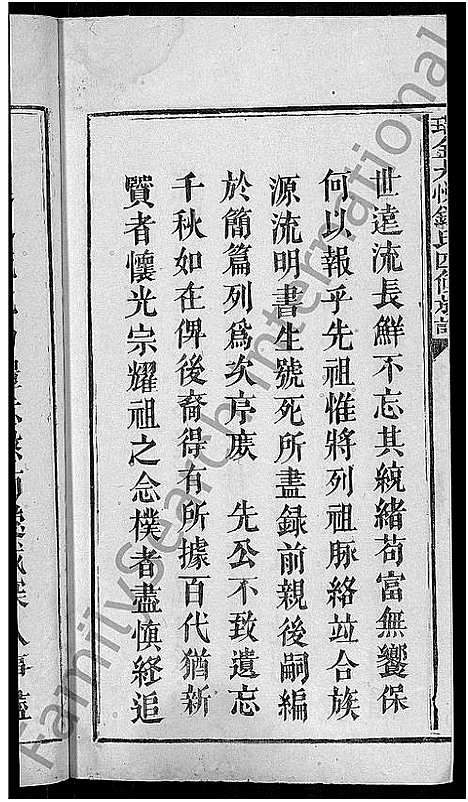 世遠流長鮮不忘其統緒苟富無饗保
何以報乎先祖惟將列祖脉絡竝合族
源流明書生號死所盡録前親後嗣編
於簡篇列爲次序庻　先公不致遺忘
千秋如在俾後裔得有所據百代猶新
賢者懷光宗耀祖之念樸者盡慎終追
氏四修族譜
FamilySearch International